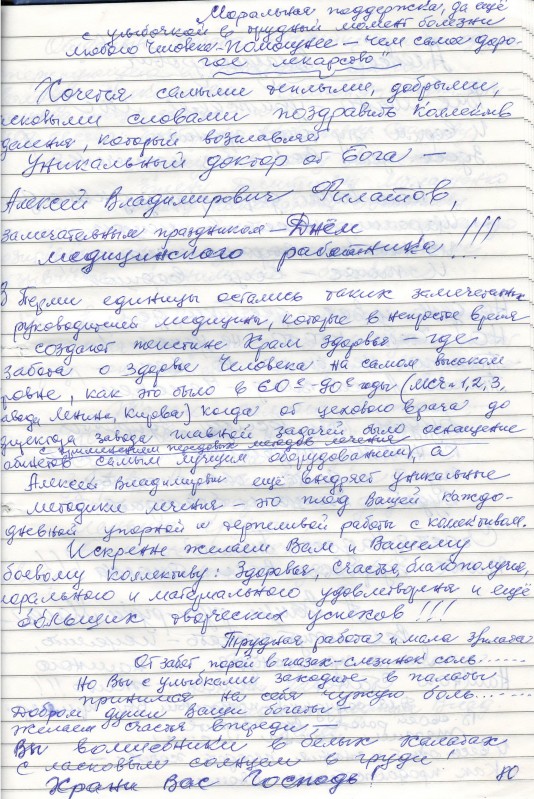 Моральная поддержка, да ещё
с улыбочкой в трудный момент болезни
любого Человека - помощнее - чем самое доро-
гое лекарство"
Хочется самыми тёплыми, добрыми,
ласковыми словами поздравить Коллектив
деления, который возглавляет
Уникальный доктор от Бога —
Алексей Владимирович Филатов,
замечательным праздником - Днём
медицинского работника!!!
В Перми единицы остались таких замечательных
руководителей медицины, которые в непростое время
создают поистине Храм Здоровья - где
забота о здоровье Человека на самом высоком
ровне, как это было в 60е-90е годы (МСЧ-1,2,3,
завод Ленина, Кирова) когда от цехового врача до
директора завода главной задачей было оснащение
с применением передовых методов лечения
кабинетов самым лучшим оборудованием, а
Алексей Владимирович ещё внедряет уникальные
методики лечения - это плод Вашей каждо-
дневной упорной и терпеливой работы с колективом.
Искренне желаем Вам и Вашему
боевому коллективу: Здоровья, Счастья, благополучия,
морального и материального удовлетворения и ещё
больших творческих успехов!!!
Трудная работа и мала зарплата
От забот порой в глазах - слезинок соль......
Но Вы с улыбками заходите в палаты
принимая на себя чужую боль......
Добром души Ваши богаты —
желаем счастья впереди —
Вы волшебники в белых халатах
С ласковым солнцем в груди!
Храни Вас Господь!
80